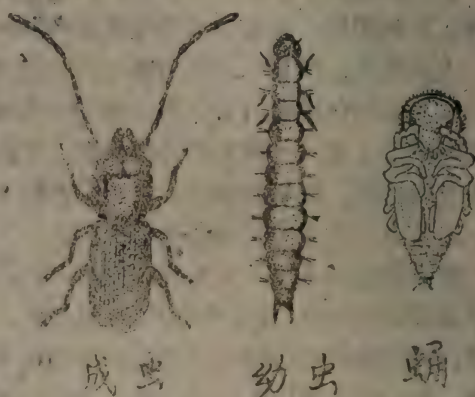 成虫 幼虫 蛹